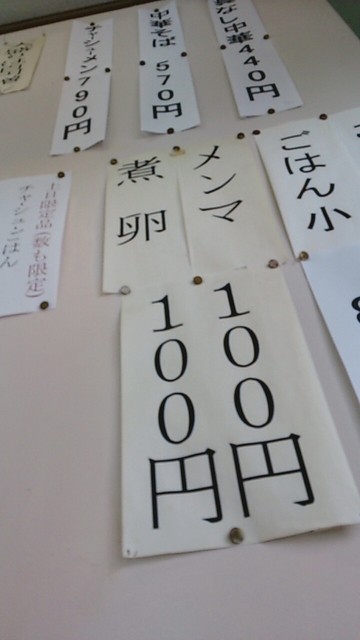 なし中華 440円
中華そば 570円
チャーシューメン 790円
ごはん小
メンマ
煮卵
100円
100円
土日限定品(数も限定)
チャーシューごはん